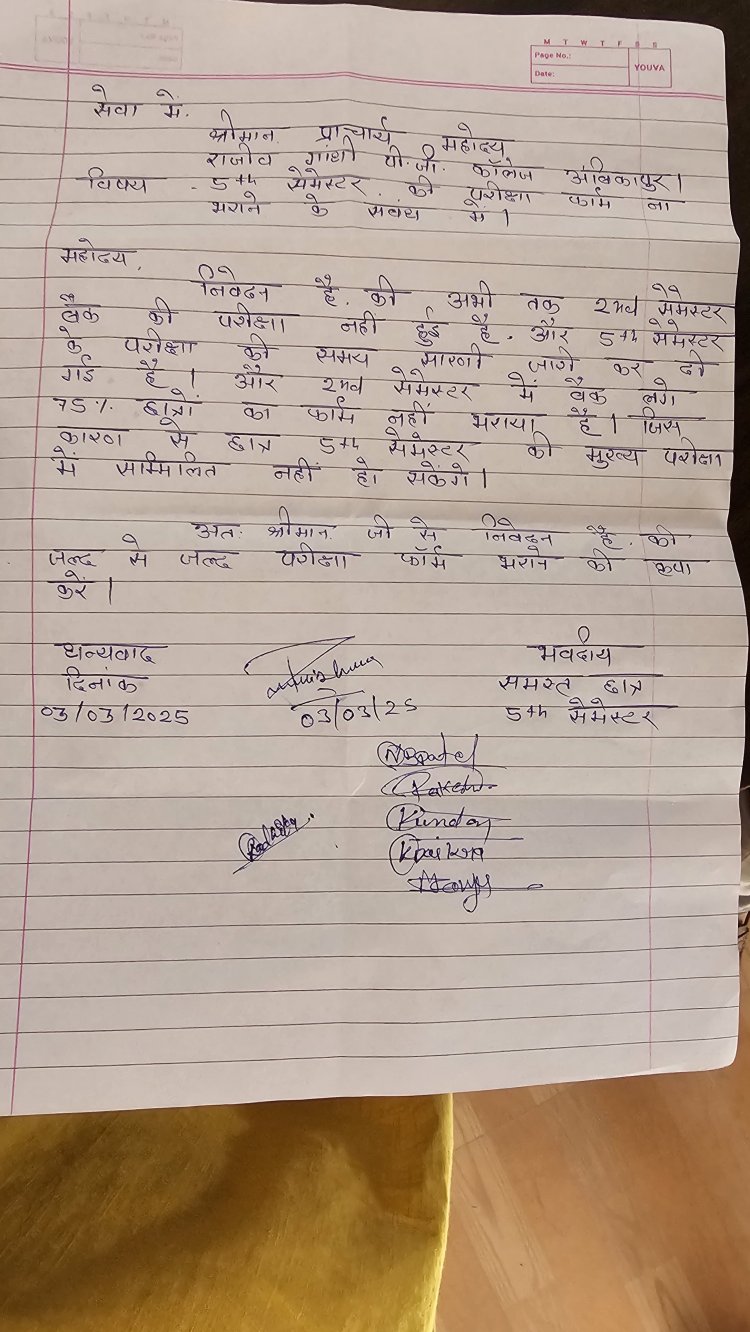 M T W T F S S
Page No.:
Date:
YOUVA
सेवा में.
श्रीमान. प्राचार्य महोदय
राजीव गांधी पी.जी. कॉलेज अंबिकापुर।
विषय - 5th सेमेस्टर. की परीक्षा फॉर्म ना
भराने के सबंध में।
महोदय,
निवेदन है. की अभी तक 2nd सेमेस्टर
बैक की परीक्षा नही हुई है. और 5th सेमेस्टर
के परीक्षा की समय सारणी जारी कर दी
गई है। और 2nd सेमेस्टर में बैक लगे
75% छात्रों का फॉर्म नहीं भराया है। जिस
कारण से छात्र 5th सेमेस्टर की मुख्य परीक्षा
में सम्मिलित नहीं हो सकेंगे।
अतः श्रीमान. जी से निवेदन है. की
जल्द से जल्द परीक्षा फॉर्म भराने की कृपा
करें।
धन्यवाद
भवदीय
दिनांक
समस्त छात्र
03/03/2025
03/03/25
5th सेमेस्टर
Kundan